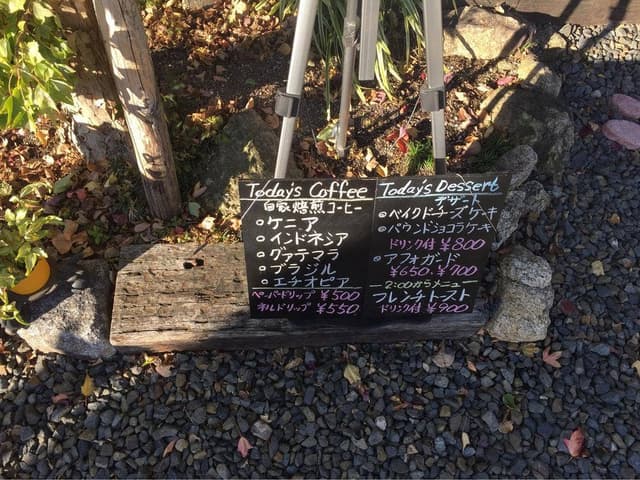 Today's Coffee
自家焙煎コーヒー
○ケニア
○インドネシア
○グァテマラ
○ブラジル
○エチオピア
ペーパードリップ ¥500
ネルドリップ ¥550
Today's Dessert
デザート
◎ベイクドチーズケーキ
◎パウンドショコラケーキ
ドリンク付 ¥800
◎アフォガード
¥650.¥700
2:00からメニュー
フレンチトースト
ドリンク付 ¥900